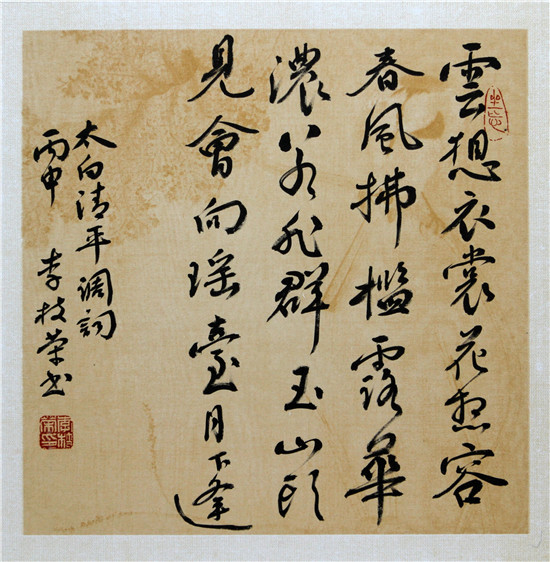 雲想衣裳花想容
春風拂檻露華
濃若非群玉山頭
見會向瑶臺月下逢
太白清平調詞
丙申 李枝荣书
坐忘